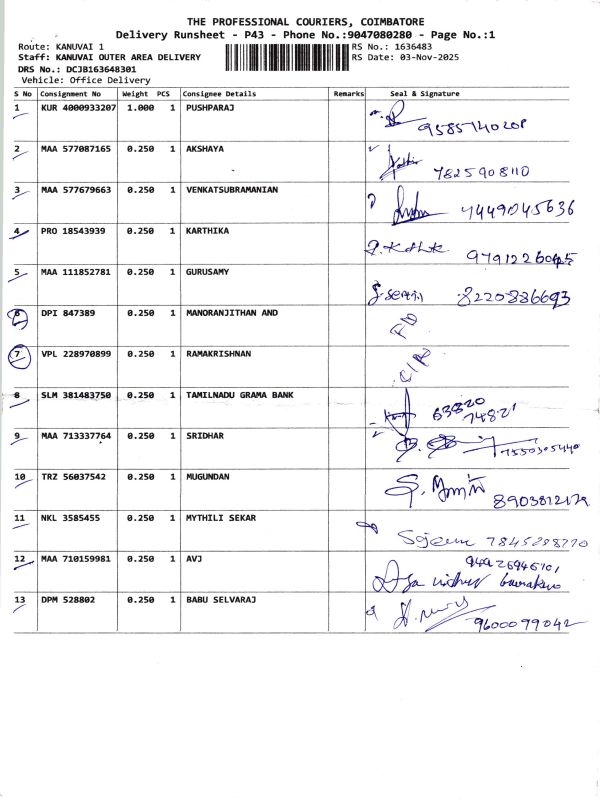 THE PROFESSIONAL COURIERS, COIMBATORE
Delivery Runsheet - P43 - Phone No.:9047080280 - Page No.:1
Route: KANUVAI 1 RS No.: 1636483
Staff: KANUVAI OUTER AREA DELIVERY RS Date: 03-Nov-2025
DRS No.: DCJB163648301
Vehicle: Office Delivery
S No Consignment No Weight PCS Consignee Details Remarks Seal & Signature
1 KUR 4000933207 1.000 1 PUSHPARAJ
2 MAA 577087165 0.250 1 AKSHAYA
7825908110
3 MAA 577679663 0.250 1 VENKATSUBRAMANIAN
7449045636
4 PRO 18543939 0.250 1 KARTHIKA
5 MAA 111852781 0.250 1 GURUSAMY
8220886693
6 DPI 847389 0.250 1 MANORANJITHAN AND
7 VPL 228970899 0.250 1 RAMAKRISHNAN
8 SLM 381483750 0.250 1 TAMILNADU GRAMA BANK
63820
74821
9 MAA 713337764 0.250 1 SRIDHAR
7550305440
10 TRZ 56037542 0.250 1 MUGUNDAN
11 NKL 3585455 0.250 1 MYTHILI SEKAR
12 MAA 710159981 0.250 1 AVJ
13 DPM 528802 0.250 1 BABU SELVARAJ
9600099042